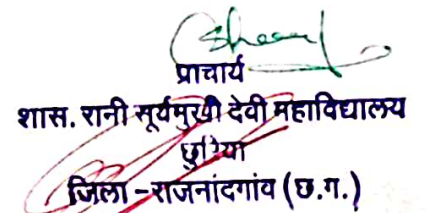 प्राचार्य
शास. रानी सूर्यमुखी देवी महाविद्यालय
छुरिया
जिला – राजनांदगांव (छ.ग.)